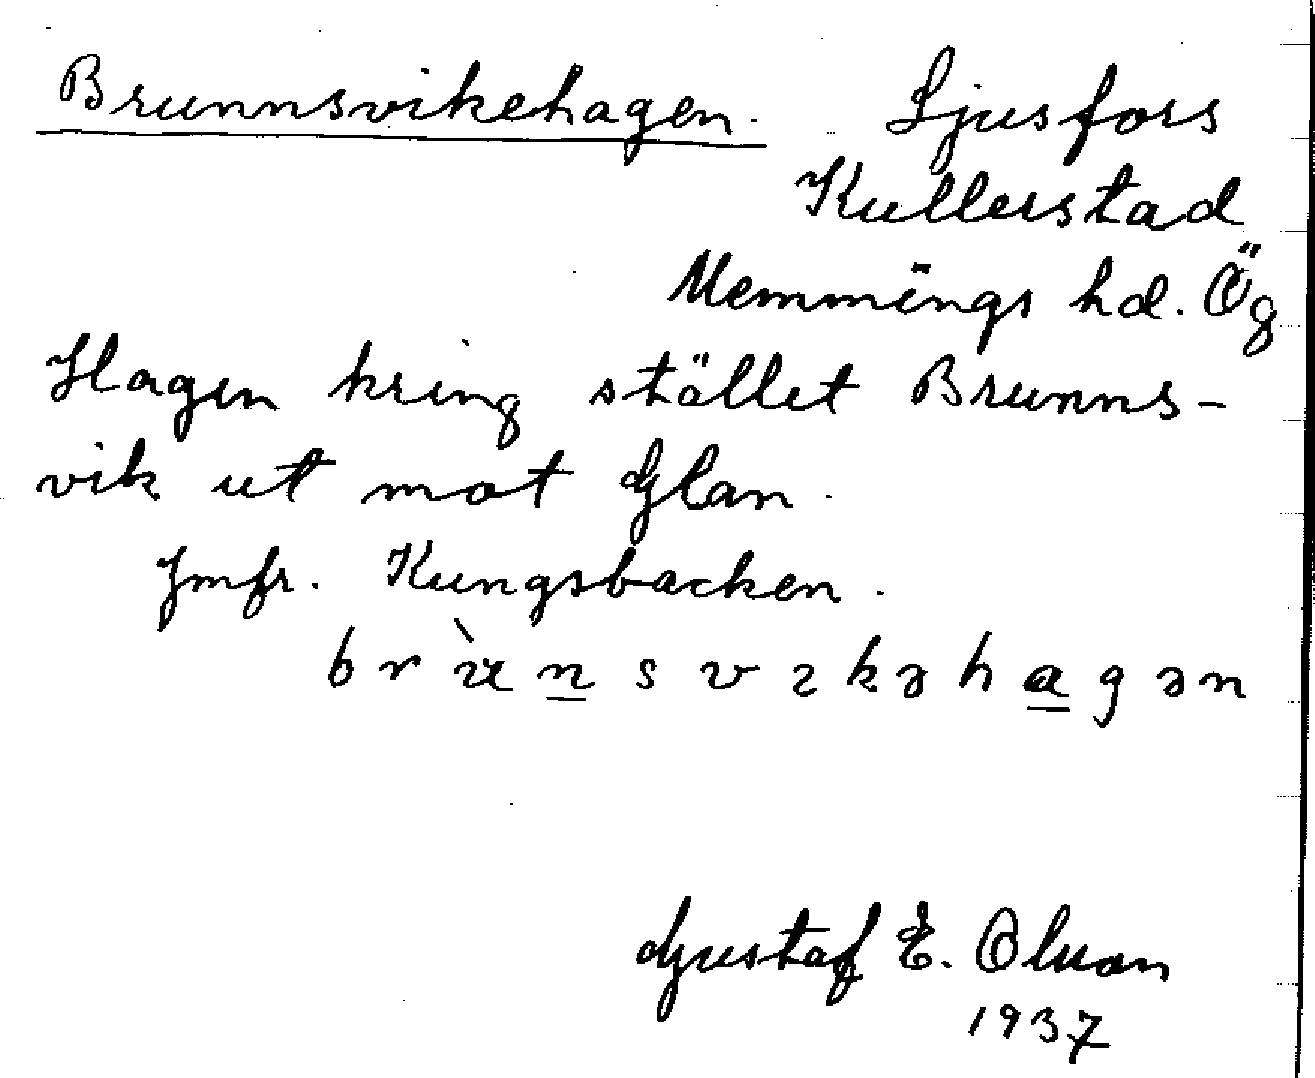 Brunnsvikehagen. Ljusfors
Kullerstad
Memmings hd. Ög
Hagen kring stället Brunns-
vik ut mot Glan.
Jmfr. Kungsbacken.
brùnsvikəhagən
Gustaf E. Olsson
1937